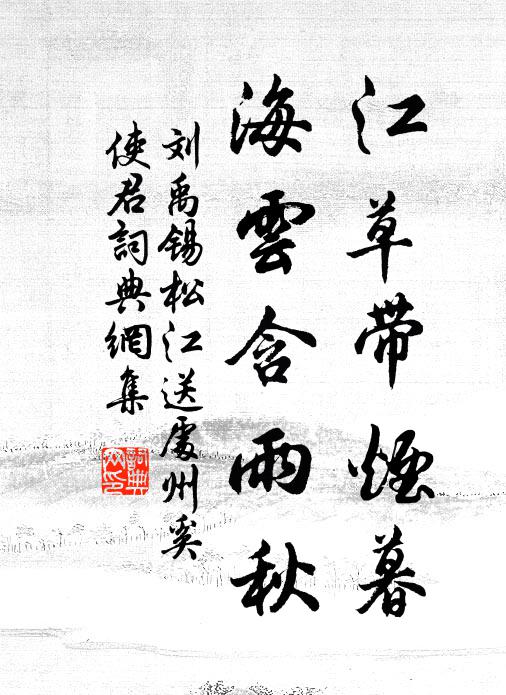 江草带煙暮
海雲含雨秋
刘禹锡松江送處州奚
使君詞典網集
詞典
网印